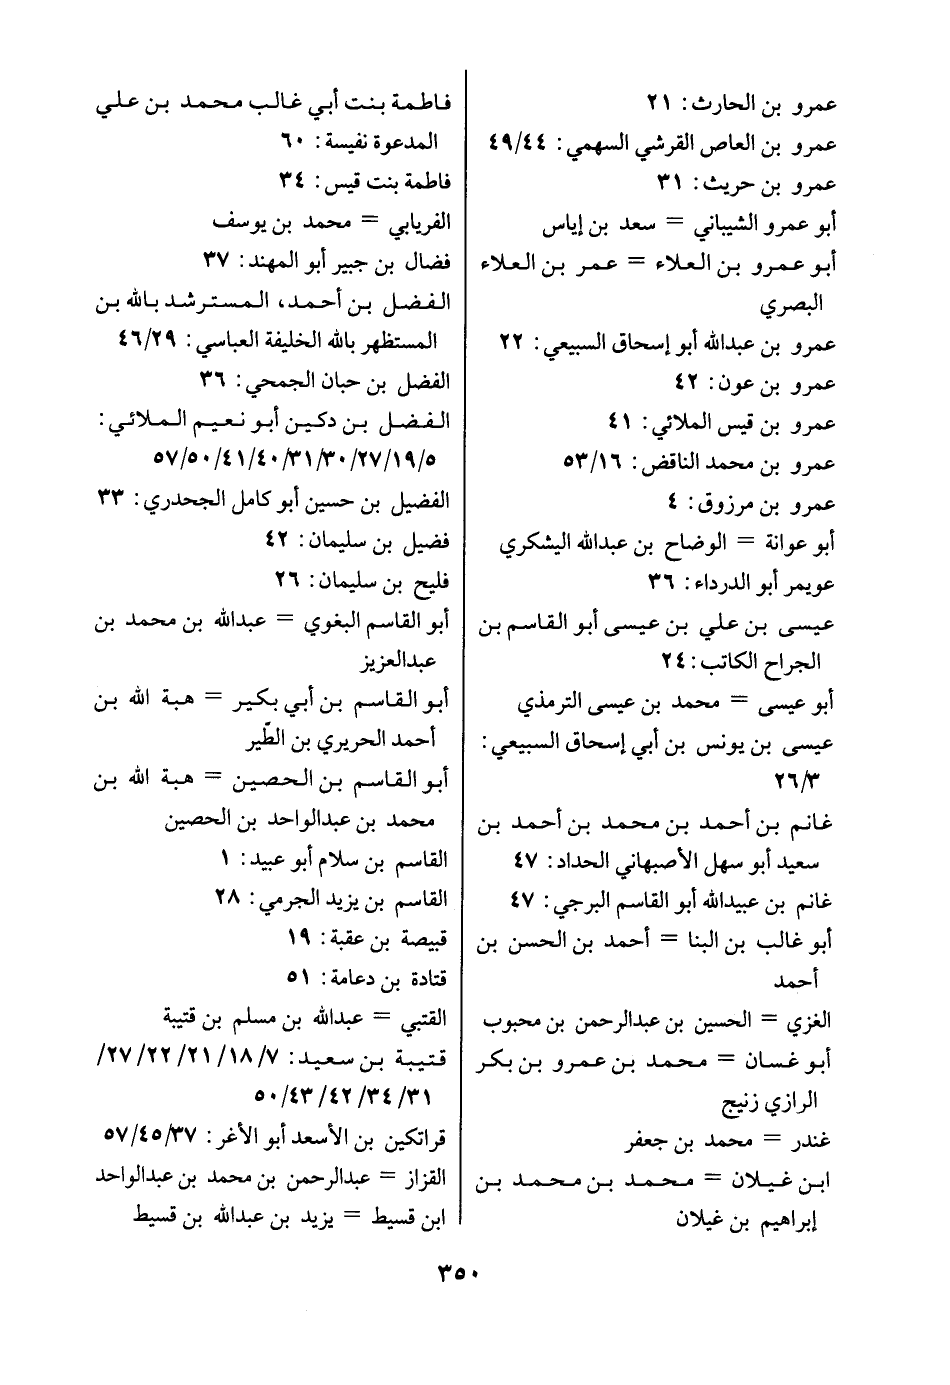 عمرو بن الحارث: ٢١
عمرو بن العاص القرشي السهمي: ٤٩/٤٤
عمرو بن حريث: ٣١
أبو عمرو الشيباني = سعد بن إياس
أبو عمرو بن العلاء = عمر بن العلاء
البصري
عمرو بن عبدالله أبو إسحاق السبيعي: ٢٢
عمرو بن عون: ٤٢
عمرو بن قيس الملائي: ٤١
عمرو بن محمد الناقض: ٥٣/١٦
عمرو بن مرزوق: ٤
أبو عوانة = الوضاح بن عبدالله اليشكري
عويمر أبو الدرداء: ٣٦
عيسى بن علي بن عيسى أبو القاسم بن
الجراح الكاتب: ٢٤
أبو عيسى = محمد بن عيسى الترمذي
عيسى بن يونس بن أبي إسحاق السبيعي:
٢٦/٣
غانم بن أحمد بن محمد بن أحمد بن
سعيد أبو سهل الأصبهاني الحداد: ٤٧
غانم بن عبيدالله أبو القاسم البرجي: ٤٧
أبو غالب بن البنا = أحمد بن الحسن بن
أحمد
الغزي = الحسين بن عبدالرحمن بن محبوب
أبو غسان = محمد بن عمرو بن بكر
الرازي زنيج
غندر = محمد بن جعفر
ابن غيلان = محمد بن محمد بن
إبراهيم بن غيلان
فاطمة بنت أبي غالب محمد بن علي
المدعوة نفيسة: ٦٠
فاطمة بنت قيس: ٣٤
الفريابي = محمد بن يوسف
فضال بن جبير أبو المهند: ٣٧
الفضل بن أحمد، المسترشد بالله بن
المستظهر بالله الخليفة العباسي: ٤٦/٢٩
الفضل بن حبان الجمحي: ٣٦
الفضل بن دكين أبو نعيم الملائي:
٥٧/٥٠/٤١/٤٠/٣١/٣٠/٢٧/١٩/٥
الفضيل بن حسين أبو كامل الجحدري: ٣٣
فضيل بن سليمان: ٤٢
فليح بن سليمان: ٢٦
أبو القاسم البغوي = عبدالله بن محمد بن
عبدالعزيز
أبو القاسم بن أبي بكير = هبة الله بن
أحمد الحريري بن الطّير
أبو القاسم بن الحصين = هبة الله بن
محمد بن عبدالواحد بن الحصين
القاسم بن سلام أبو عبيد: ١
القاسم بن يزيد الجرمي: ٢٨
قبيصة بن عقبة: ١٩
قتادة بن دعامة: ٥١
القتبي = عبدالله بن مسلم بن قتيبة
قتيبة بن سعيد: ٧/ ١٨/ ٢١/ ٢٢/ ٢٧/
٣١/ ٣٤/ ٤٢/ ٥٠/٤٣
قراتكين بن الأسعد أبو الأغر: ٥٧/٤٥/٣٧
القزاز = عبدالرحمن بن محمد بن عبدالواحد
ابن قسيط = يزيد بن عبدالله بن قسيط
٣٥٠